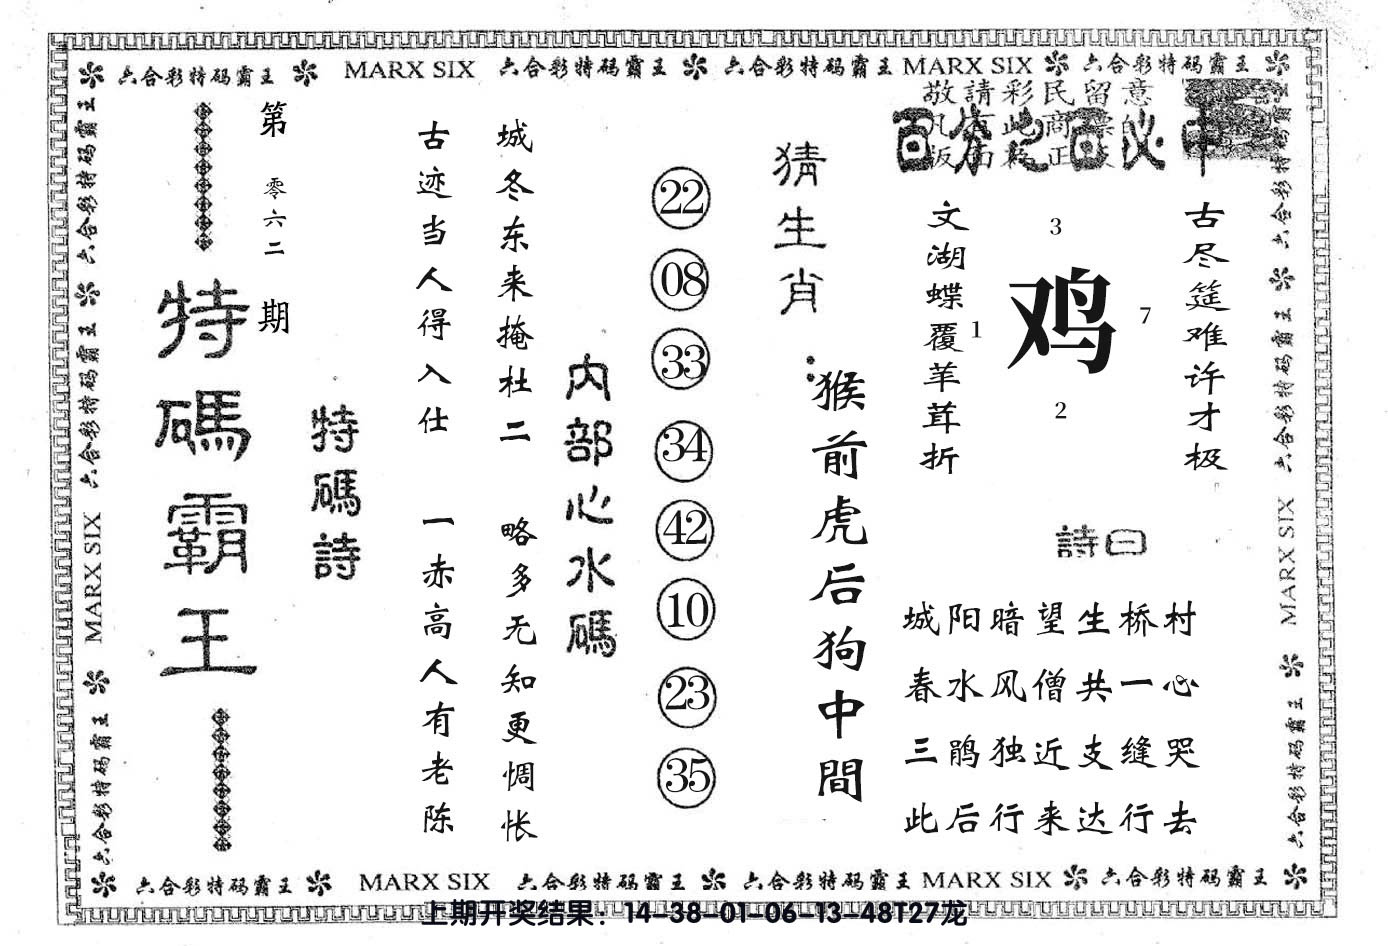 六合彩特码霸王 MARX SIX 六合彩特码霸王 六合彩特码霸王 MARX SIX 六合彩特码霸王
六合彩特码霸王 六合彩特码霸王 MARX SIX 六合彩特码霸王
第零六二期
特碼霸王
特碼詩
古迹当人得入仕 一赤高人有老陈
城冬东来掩杜二 略多无知更惆怅
内部心水碼
22
08
33
34
42
10
23
35
猜生肖:
猴前虎后狗中間
敬請彩民留意
文湖蝶覆羊茸折
3
1
鸡
7
2
古尽筵难许才极
詩曰
城阳暗望生桥村
春水风僧共一心
三鹃独近支缝哭
此后行来达行去
六合彩特码霸王 六合彩特码霸王 MARX SIX 六合彩特码霸王
六合彩特码霸王 MARX SIX 六合彩特码霸王 六合彩特码霸王 MARX SIX 六合彩特码霸王
上期开奖结果：14-38-01-06-13-48T27龙